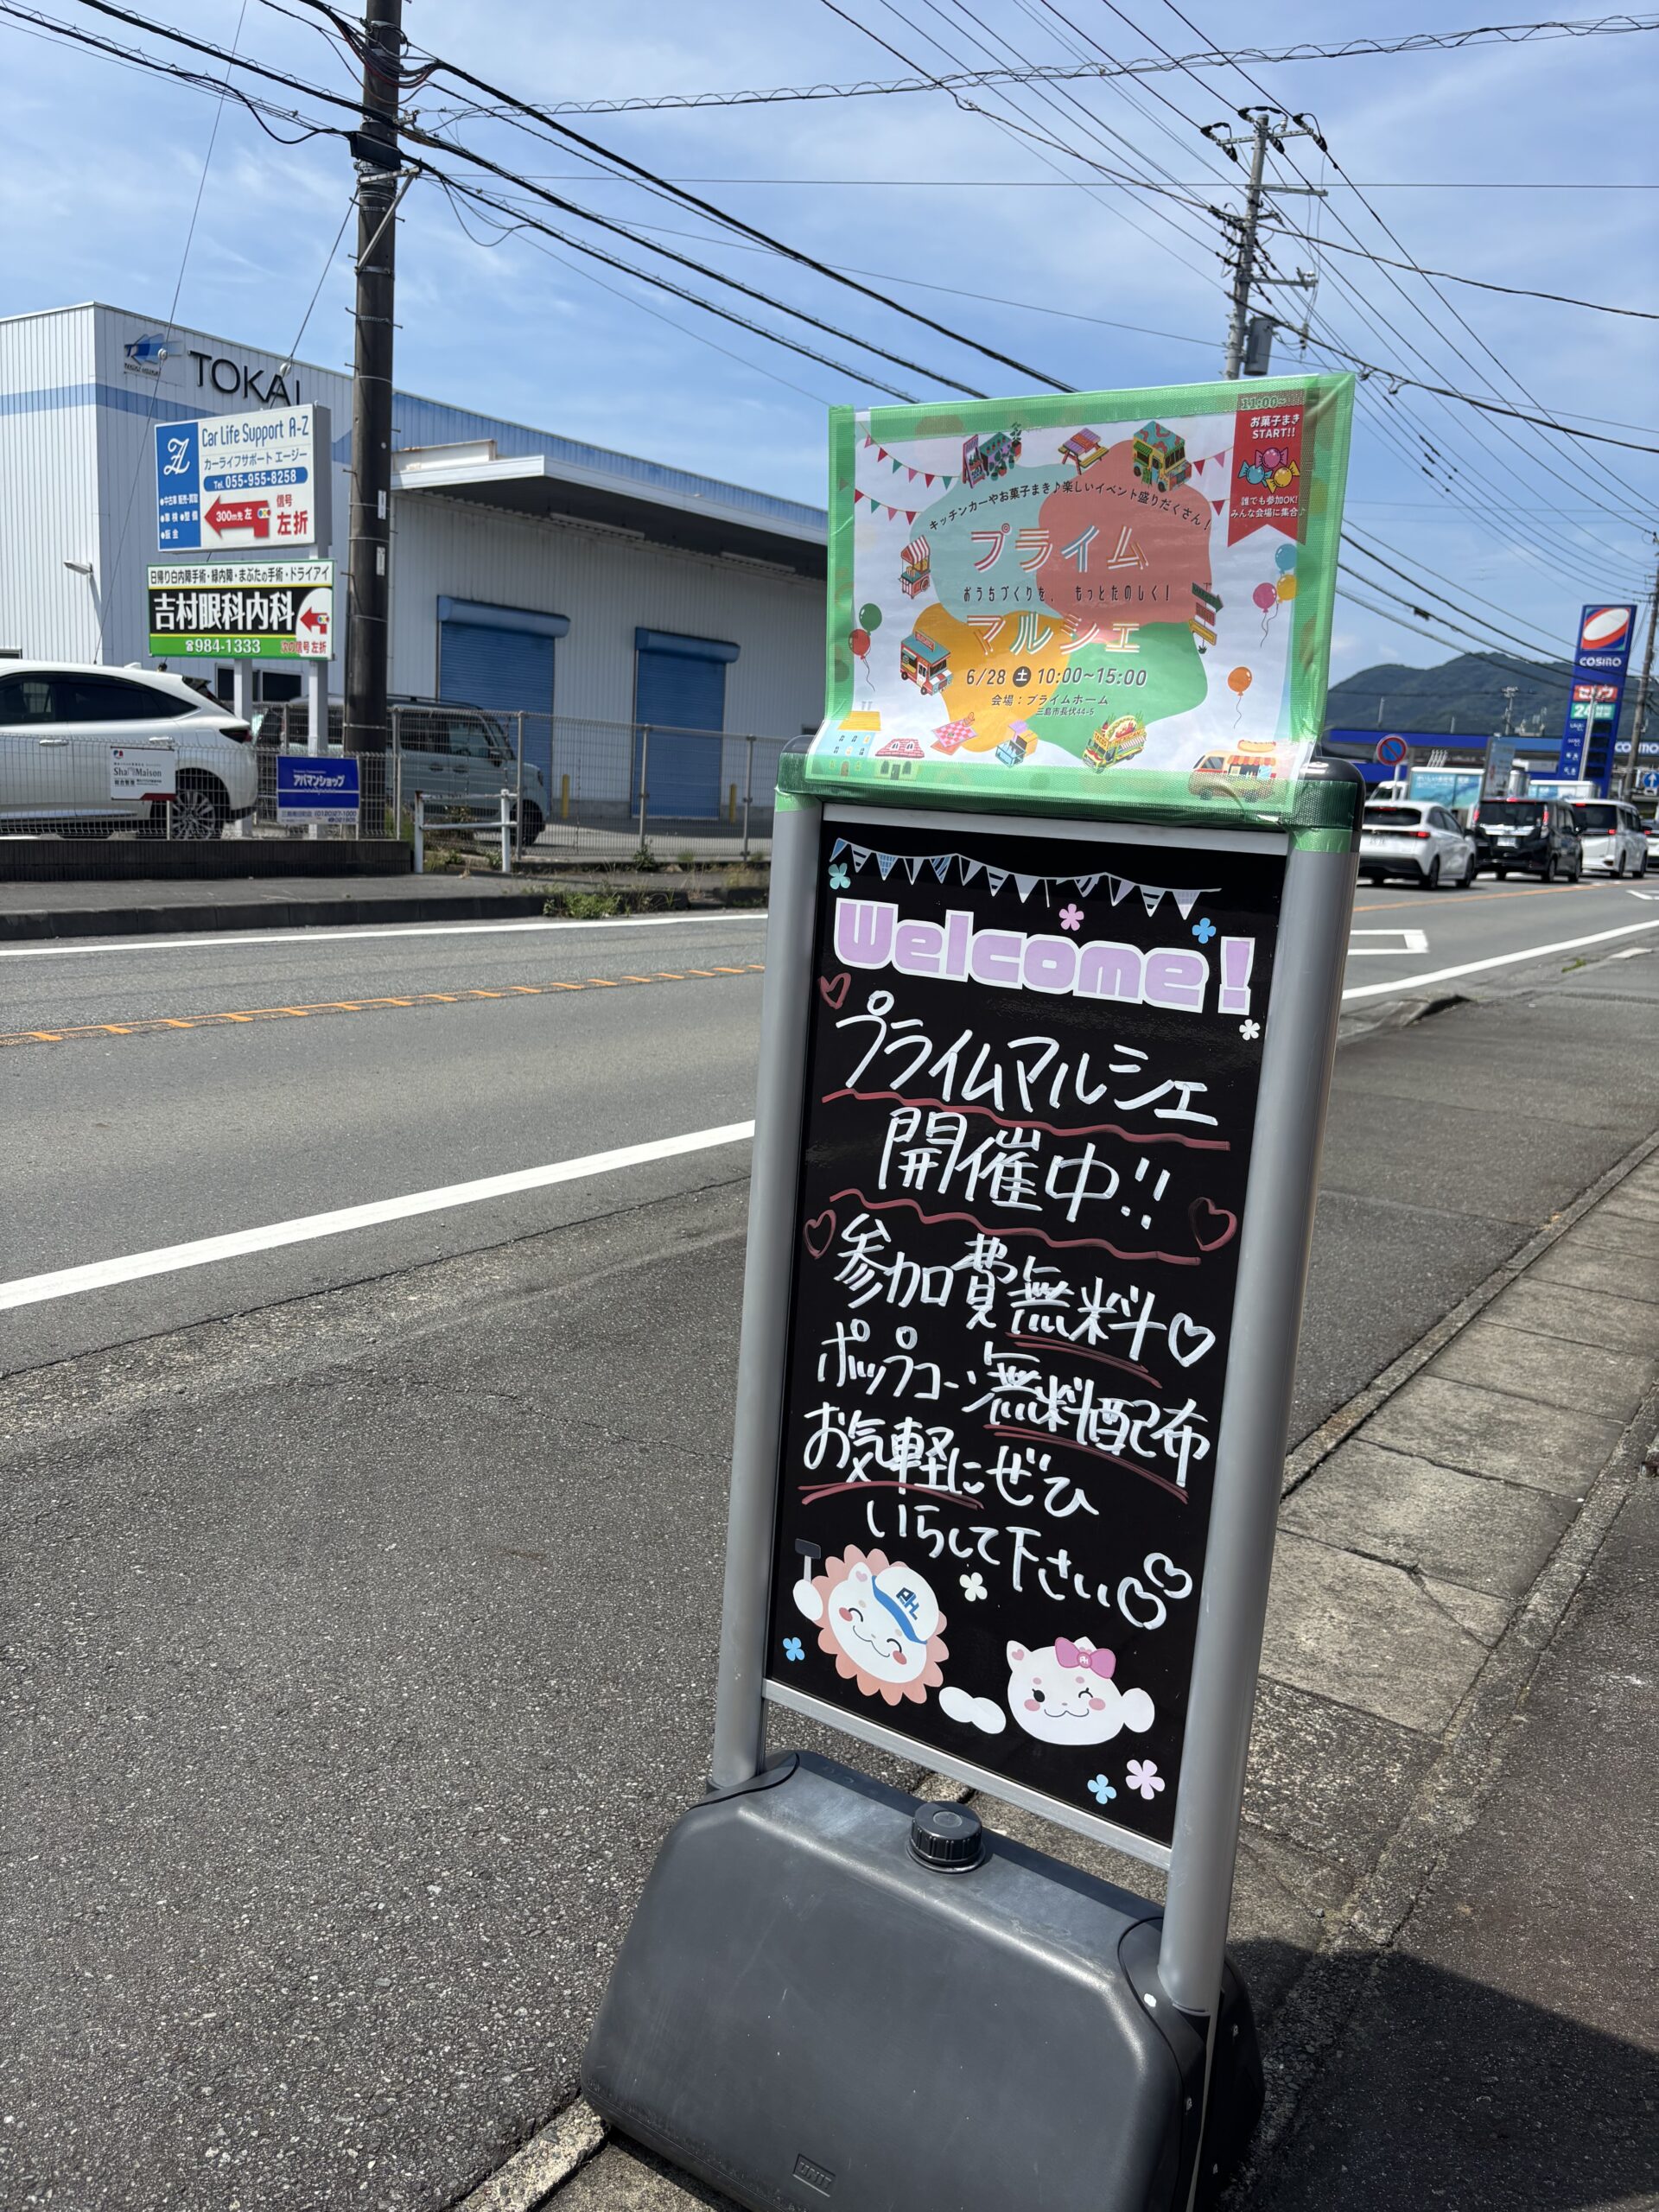 TOKAI
Car Life Support A-Z
カーライフサポート エージー
Tel. 055-955-8258
●中古車 販売・買取
●車検 ●整備
●鈑金
300m先 左
信号
左折
日帰り白内障手術・緑内障・まぶたの手術・ドライアイ
吉村眼科内科
☎984-1333
次の信号左折
ShaMaison
アパマンショップ
11:00~
お菓子まき
START!!
誰でも参加OK!
みんな会場に集合♪
キッチンカーやお菓子まき♪楽しいイベント盛りだくさん!
プライム
おうちづくりを、もっとたのしく!
マルシェ
6/28 土 10:00~15:00
会場:プライムホーム
三島市長伏44-5
COSMO
24
COSMO
Welcome!
プライムマルシェ
開催中!!
参加費無料♡
ポップコーン無料配布
お気軽にぜひ
いらして下さい
PH
PH